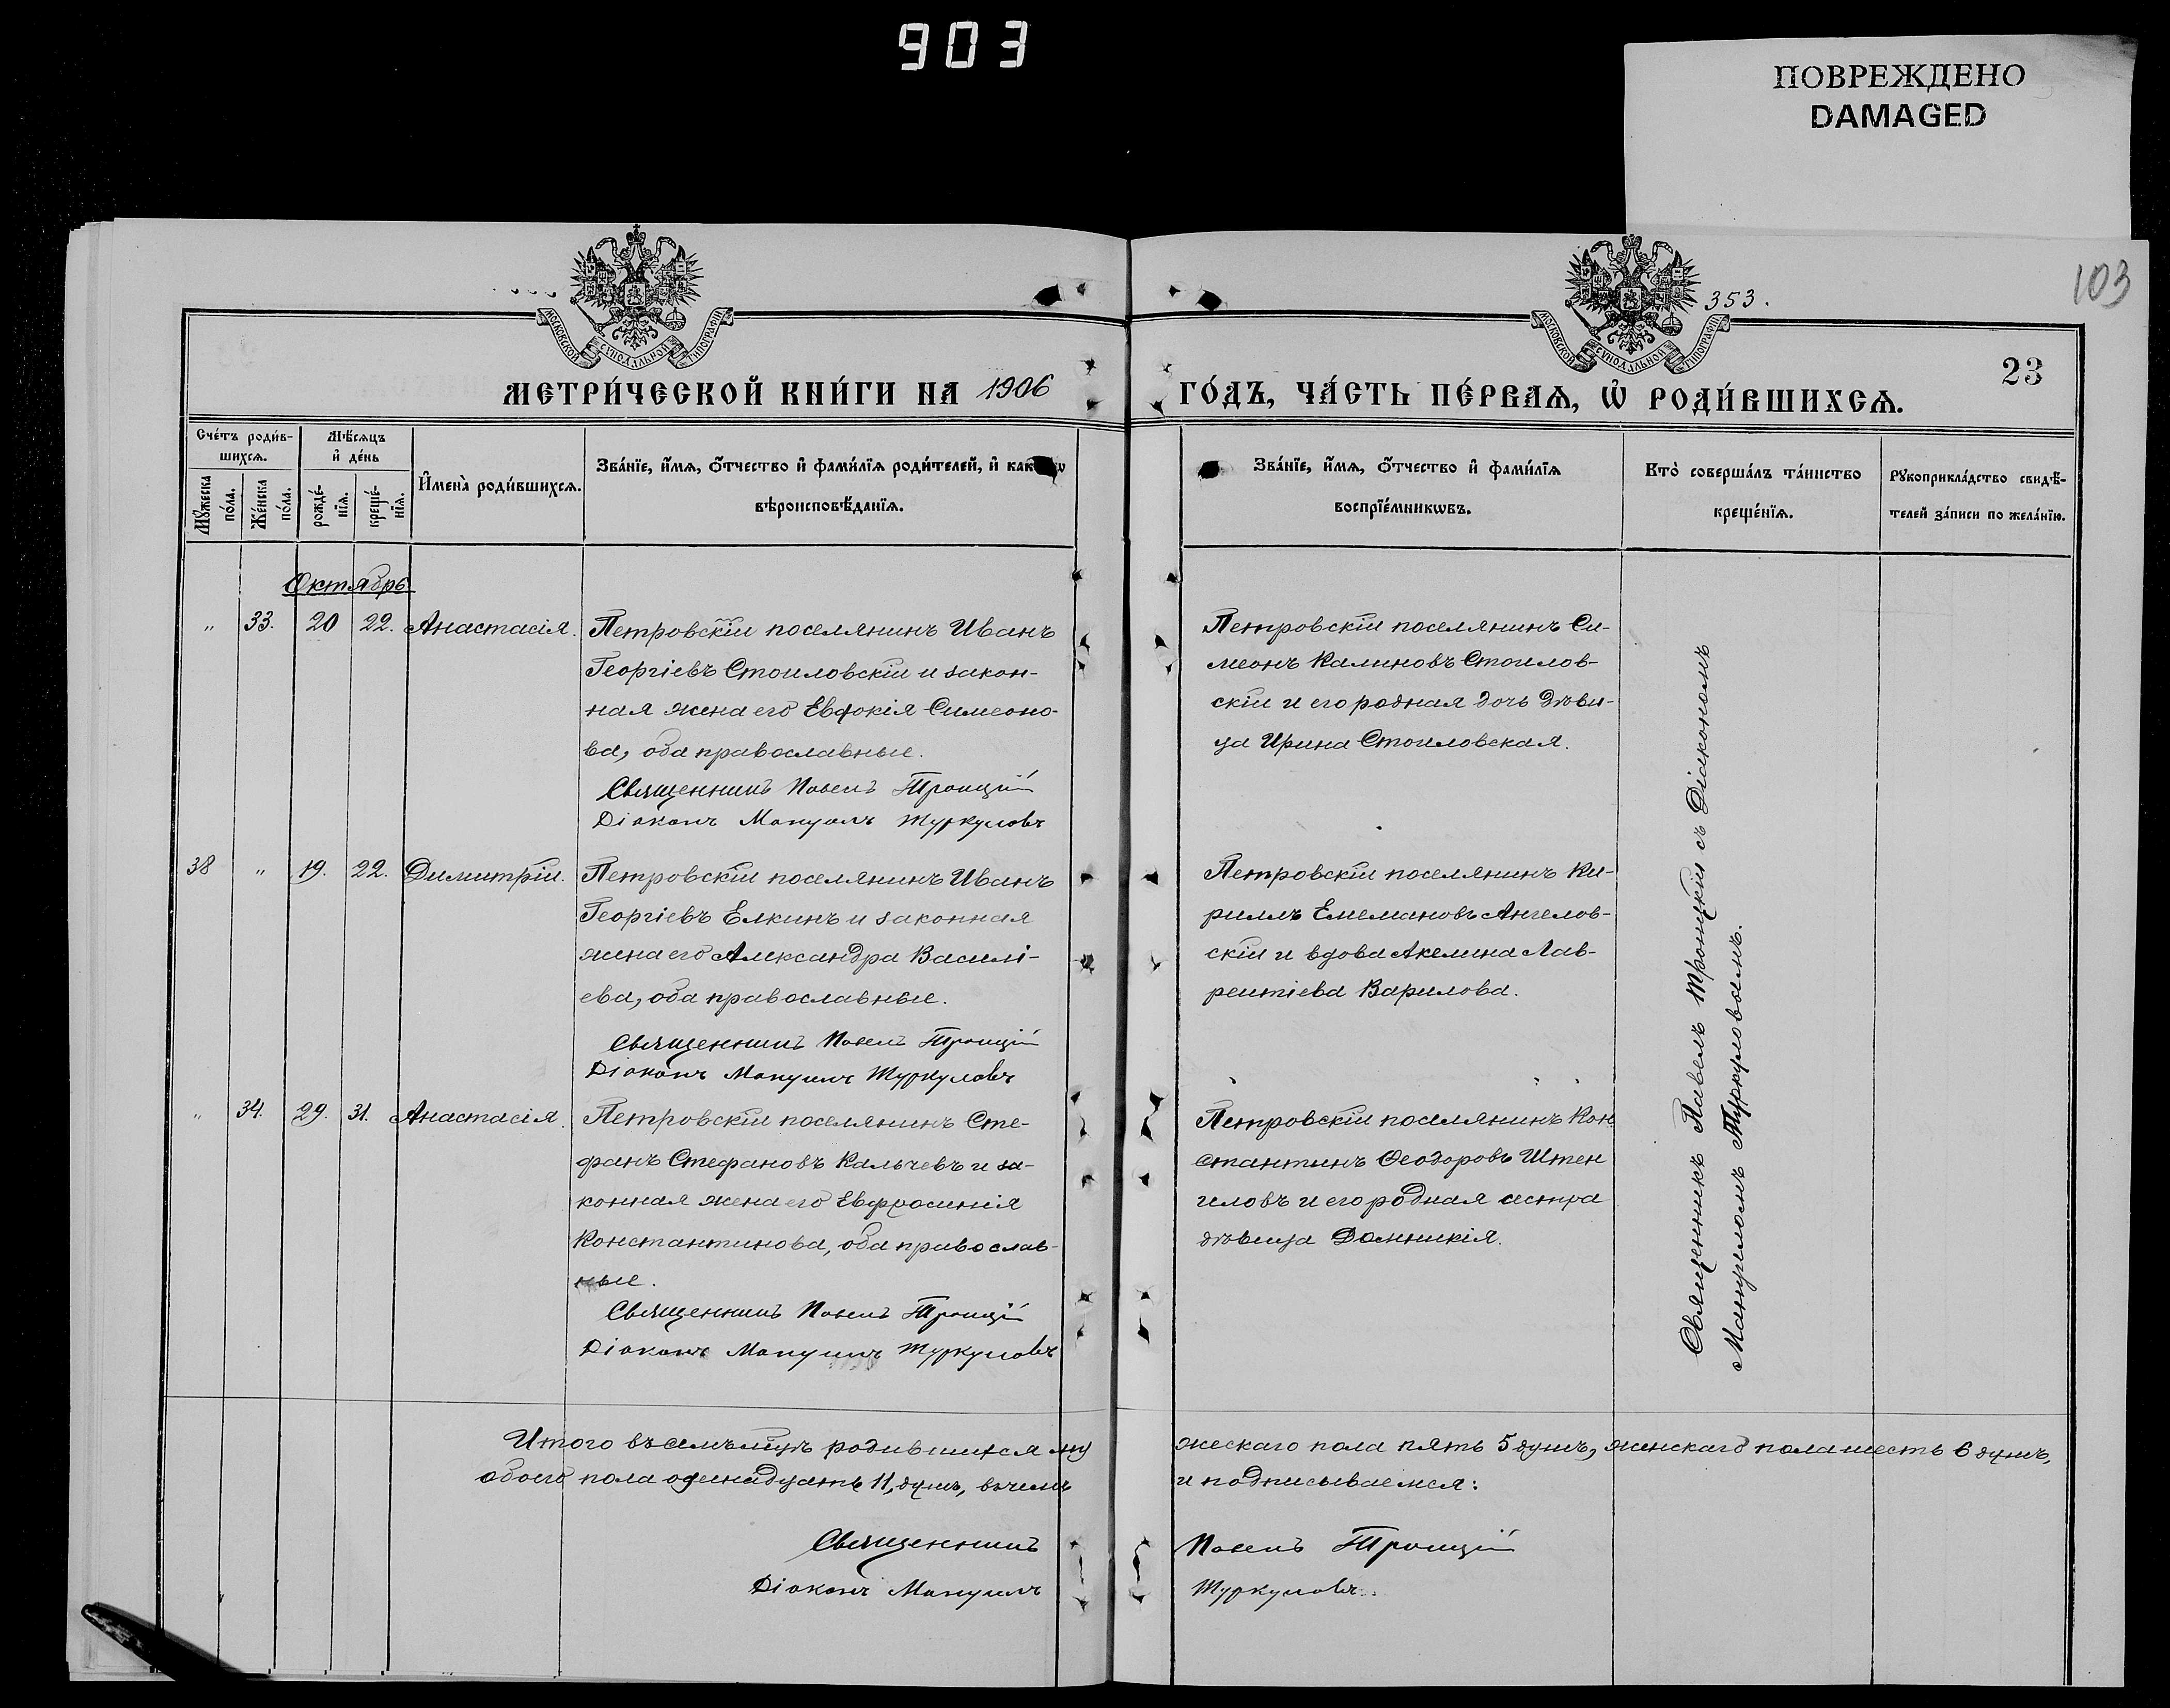 903
ПОВРЕЖДЕНО
DAMAGED
103
353.
23
МОСКОВСКОЙ СѴНОДАЛЬНОЙ ТИПОГРАФІИ
МОСКОВСКОЙ СѴНОДАЛЬНОЙ ТИПОГРАФІИ
МЕТРИ́ЧЕСКОЙ КНИ́ГИ НА 1906
ГО́ДЪ, ЧА́СТЬ ПЕ́РВАѦ, Ѡ҆ РОДИ́ВШИХСѦ.
Сче́тъ роди́в-
шихсѧ.
Мꙋ́жеска
по́ла.
Же́нска
по́ла.
Мѣ́сѧцъ
и҆ де́нь
рожде́-
нїѧ.
креще́-
нїѧ.
И҆мена̀ роди́вшихсѧ.
Зва́нїе, и҆́мѧ, ѻ҆́тчество и҆ фами́лїѧ роди́телей, и҆ как
вѣроисповѣ́данїѧ.
Зва́нїе, и҆́мѧ, ѻ҆́тчество и҆ фами́лїѧ
воспрїе́мникѡвъ.
Кто̀ соверша́лъ та́инство
креще́нїѧ.
Рꙋкоприкла́дство свидѣ́-
телей за́писи по жела́нїю.
Октябрь
" 33. 20 22. Анастасія.
Петровскій поселянинъ Иванъ
Георгіевъ Стоиловскій и закон-
ная жена его Евфокія Симеоно-
ва, оба православные.
Священникъ Павелъ Троицкій
Діаконъ Мануилъ Туркуловъ
Петровскій поселянинъ Си-
меонъ Калиновъ Стоилов-
скій и его родная дочь дѣви-
ца Ирина Стоиловская.
38 " 19. 22. Димитрій.
Петровскій поселянинъ Иванъ
Георгіевъ Елкинъ и законная
жена его Александра Василі-
ева, оба православные.
Священникъ Павелъ Троицкій
Діаконъ Мануилъ Туркуловъ
Петровскій поселянинъ Ки-
риллъ Емемановъ Ангелов-
скій и вдова Акелина Лав-
рентіева Варилова.
" 34. 29. 31. Анастасія.
Петровскій поселянинъ Сте-
фанъ Стефановъ Кальчевъ и за-
конная жена его Евфросинія
Константинова, оба православ-
ные.
Священникъ Павелъ Троицкій
Діаконъ Мануилъ Туркуловъ
Петровскій поселянинъ Кон
стантинъ Ѳеодоровъ Штен
гиловъ и его родная сестра
дѣвица Домникія.
Священникъ Павелъ Троицкій съ Діакономъ
Мануиломъ Туркуловымъ.
Итого въ семъ родившихся му
жескаго пола пять 5 душъ, женскаго пола шесть 6 душъ,
обоего пола одинадцать 11, душъ, въ чемъ
и подписываемся:
Священникъ Павелъ Троицкій
Діаконъ Мануилъ Туркуловъ.